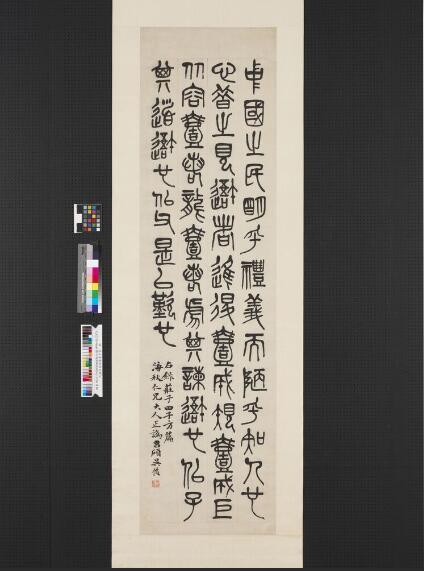 中國之民明乎禮義而陋乎知人也
心昔之見䢩者進退壹成規壹成巨
从容壹若龍壹若虎其諫䢩也似子
其道䢩也似父是以歎也
右錄莊子田子方篇
海秋仁兄大人正譌昌碩吳俊